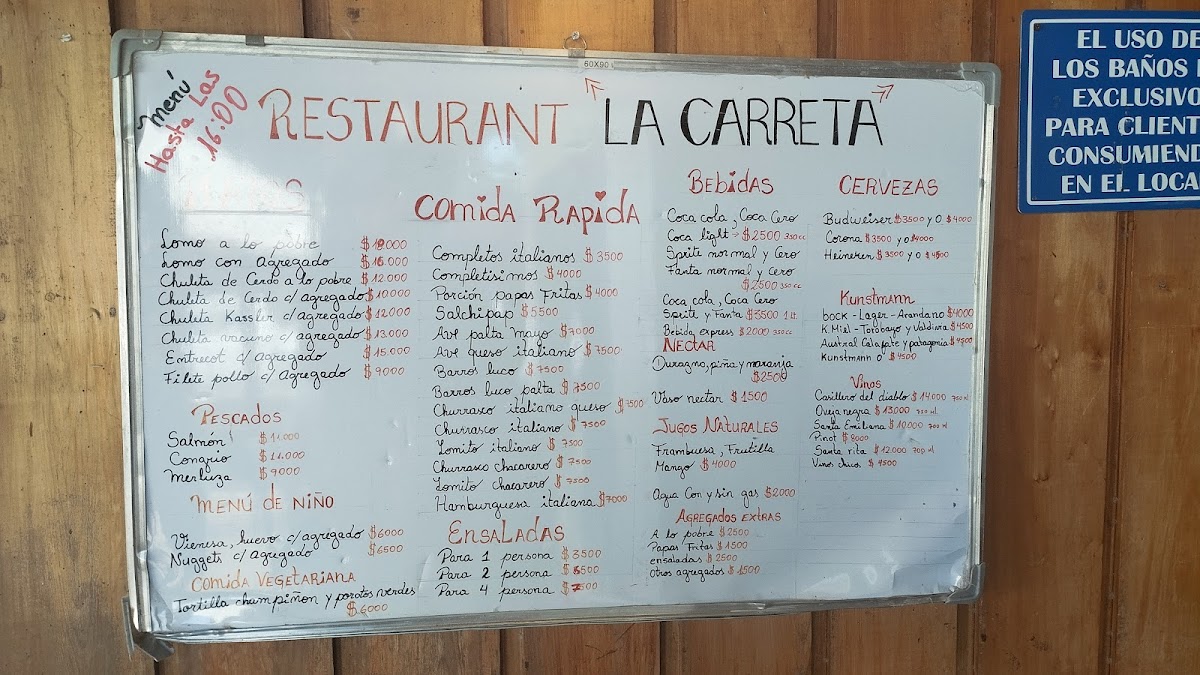 60X90
menú
Hasta Las
16:00
RESTAURANT LA CARRETA
Lomo a lo pobre
Lomo con agregado $16.000
Chuleta de Cerdo a lo pobre $12.000
Chuleta de Cerdo c/ agregado $10.000
Chuleta Kassler c/ agregado $12.000
Chuleta vacuno c/ agregado $13.000
Entrecot c/ agregado $15.000
Filete pollo c/ agregado $9000
PESCADOS
Salmón $11.000
Congrio $11.000
Merluza $9000
MENÚ DE NIÑO
Vienesa, huevo c/ agregado $6000
Nuggets c/ agregado $6500
Comida VEGETARIANA
Tortilla champiñon y porotos verdes
$6000
Comida Rapida
Completos italianos $3500
Completisimos $4000
Porción papas Fritas $4000
Salchipap $5500
Ave palta mayo $7000
Ave queso italiano $7500
Barros luco $7500
Barros luco palta $7500
Churrasco italiano queso $7500
Churrasco italiano $7500
Lomito italiano $7500
Churrasco chacarero $7500
Lomito chacarero $7500
Hamburguesa italiana $7000
ENSALADAS
Para 1 persona $3500
Para 2 persona
Para 4 persona
BEBIDAS
Coca cola, Coca Cero
Coca light $2500 350cc
Sprite normal y Cero
Fanta normal y Cero
$2500 350 cc
Coca cola, Coca Cero
Sprite y Fanta $3500 1 lt.
Bebida express $2000 350cc
NECTAR
Durazno, piña y naranja
$2500
Vaso nectar $1500
JUGOS NATURALES
Frambuesa, Frutilla
Mango $4000
Agua Con y sin gas $2000
AGREGADOS EXTRAS
A lo pobre $2500
Papas Fritas $1500
ensaladas $2500
Otros agregados $1500
CERVEZAS
Budweiser $3500 y O $4000
Corona $3500 y O $4000
Heineken $3500 y O $4500
Kunstmann
bock - Lager - Arandano $4000
K. Miel - Torobayo y Valdivia $4500
Austral Calafate y patagonia $4500
Kunstmann O $4500
Vinos
Casillero del diablo $14.000 700 ml
Oveja negra $13.000 700 ml
Santa Emiliana $10.000 700 ml
Pinot $8000
Santa rita $12.000 700 ml
Vinos chicos $4500
EL USO DE
LOS BAÑOS
EXCLUSIVO
PARA CLIENT
CONSUMIEND
EN EL LOCA